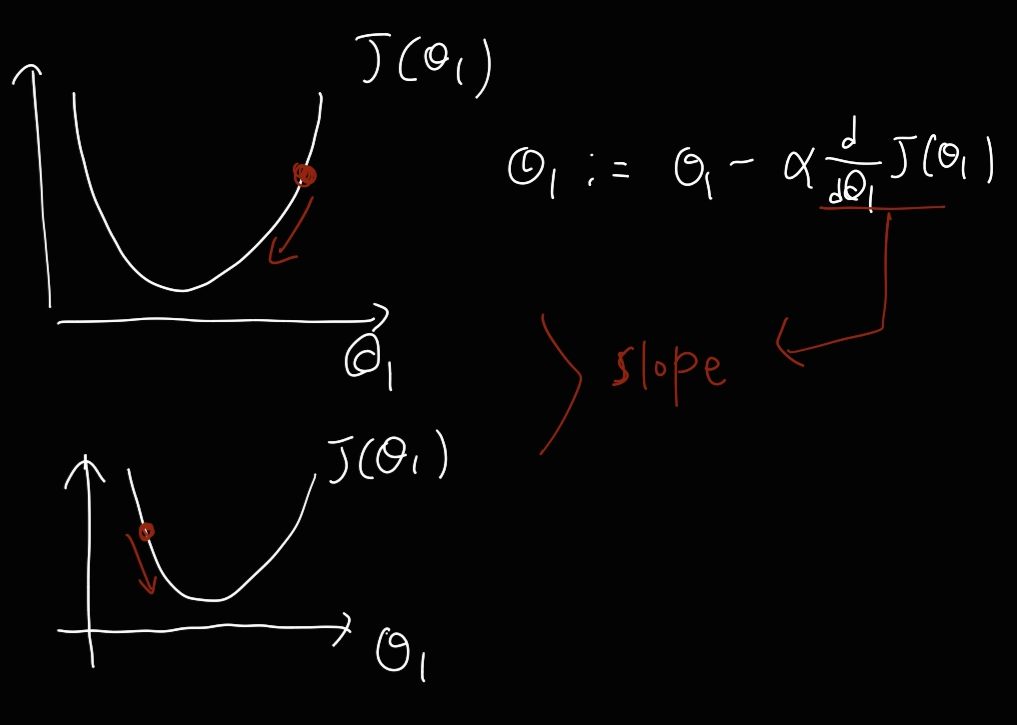 J(θ₁)
θ₁ := θ₁ - α d/dθ₁ J(θ₁)
θ₁
slope
J(θ₁)
θ₁